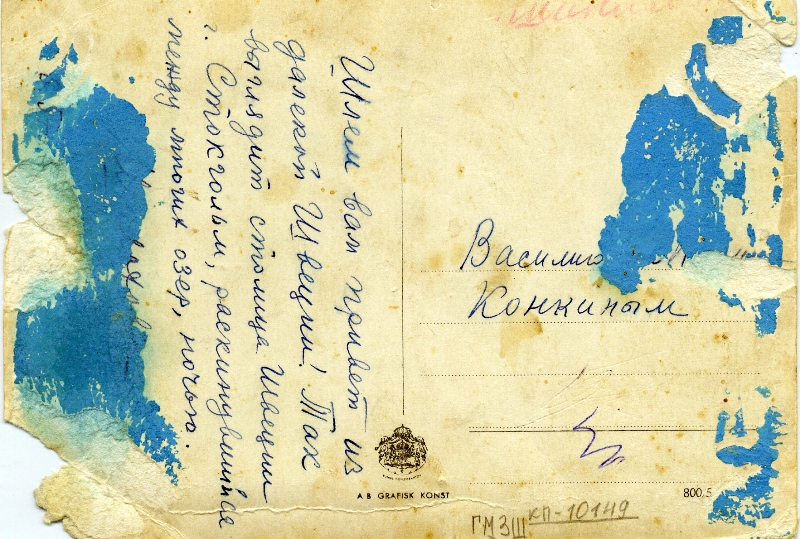 Шлем вам привет из
далекой Швеции! Так
выглядит столица Швеции
г. Стокгольм, раскинувшийся
между многих озер, ночью.
Василию
Конкиным
A B GRAFISK KONST
800,5
ГМЗШ КП-10149